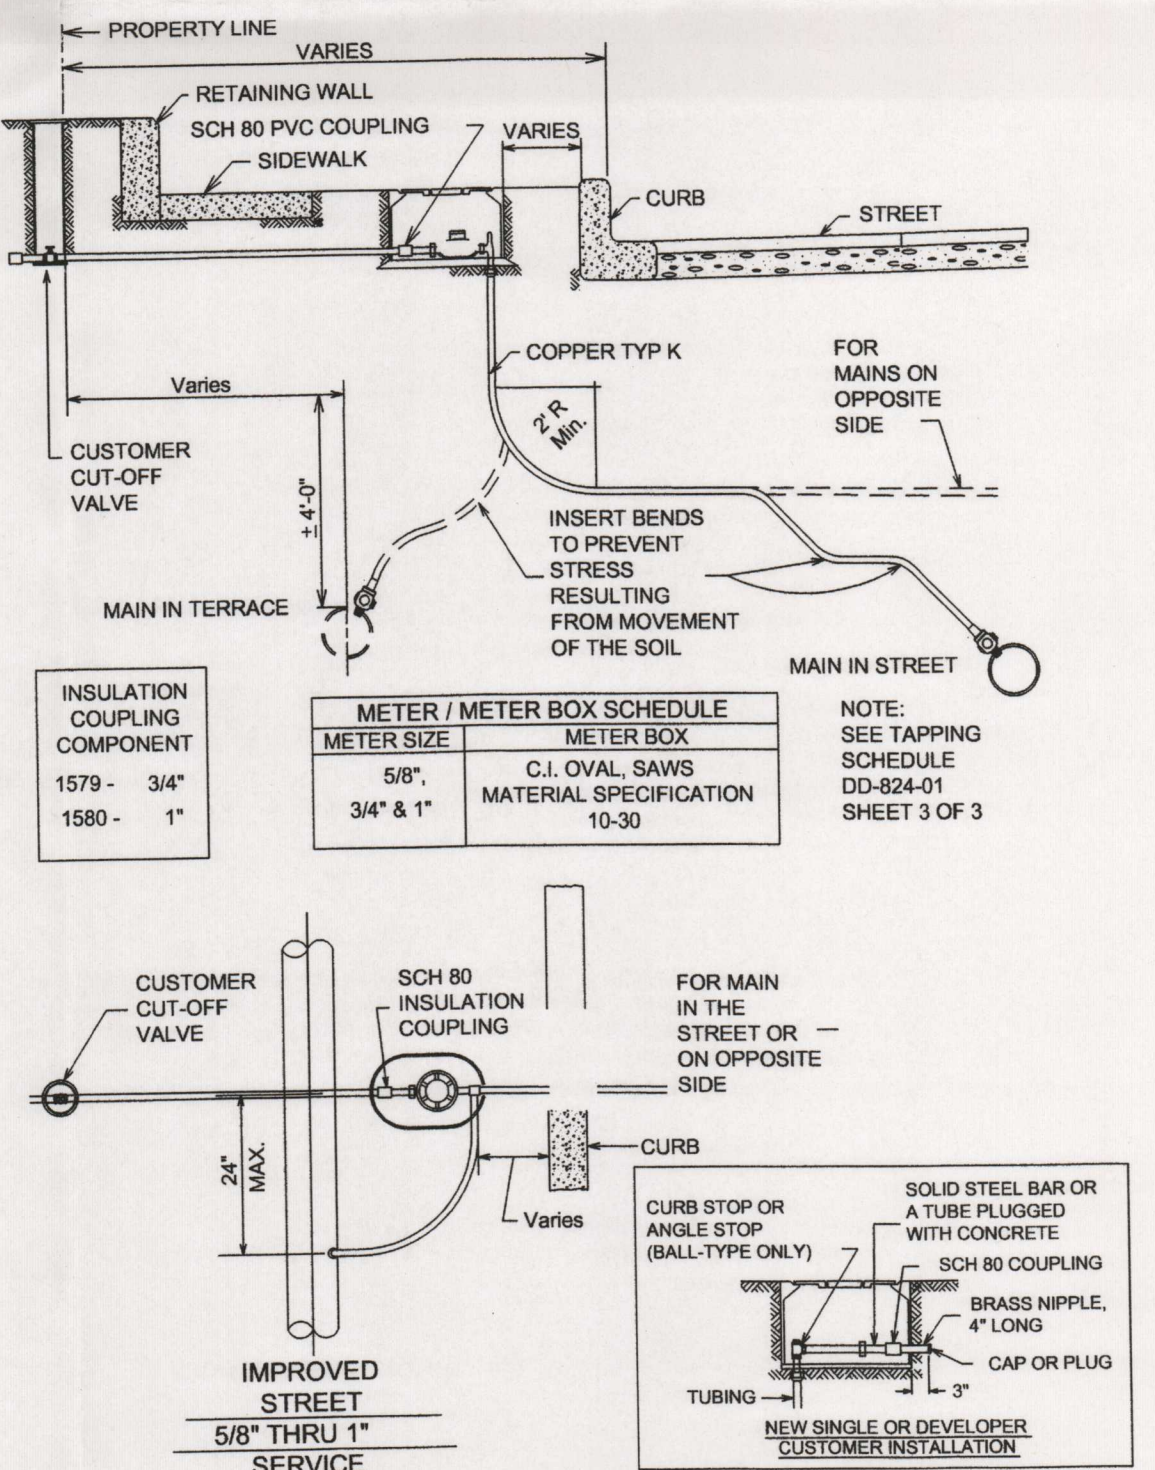 PROPERTY LINE
VARIES
RETAINING WALL
SCH 80 PVC COUPLING
VARIES
SIDEWALK
CURB
STREET
COPPER TYP K
FOR
MAINS ON
OPPOSITE
SIDE
Varies
2' R
Min.
CUSTOMER
CUT-OFF
VALVE
± 4'-0"
INSERT BENDS
TO PREVENT
STRESS
RESULTING
FROM MOVEMENT
OF THE SOIL
MAIN IN TERRACE
MAIN IN STREET
INSULATION
COUPLING
COMPONENT
1579 - 3/4"
1580 - 1"
METER / METER BOX SCHEDULE
METER SIZE METER BOX
5/8",
3/4" & 1"
C.I. OVAL, SAWS
MATERIAL SPECIFICATION
10-30
NOTE:
SEE TAPPING
SCHEDULE
DD-824-01
SHEET 3 OF 3
CUSTOMER
CUT-OFF
VALVE
SCH 80
INSULATION
COUPLING
FOR MAIN
IN THE
STREET OR
ON OPPOSITE
SIDE
24"
MAX.
CURB
Varies
IMPROVED
STREET
5/8" THRU 1"
SERVICE
CURB STOP OR
ANGLE STOP
(BALL-TYPE ONLY)
SOLID STEEL BAR OR
A TUBE PLUGGED
WITH CONCRETE
SCH 80 COUPLING
BRASS NIPPLE,
4" LONG
CAP OR PLUG
TUBING
3"
NEW SINGLE OR DEVELOPER
CUSTOMER INSTALLATION